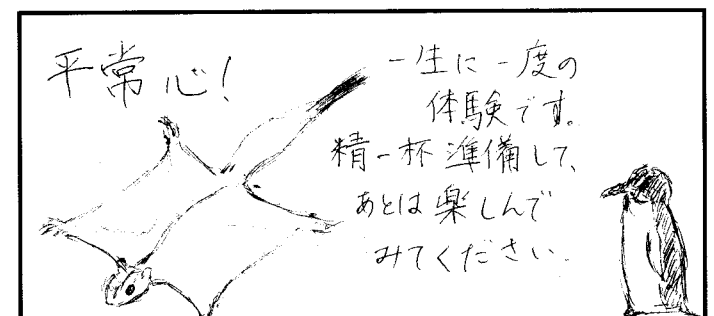 平常心!
一生に一度の
体験です。
精一杯準備して、
あとは楽しんで
みてください。